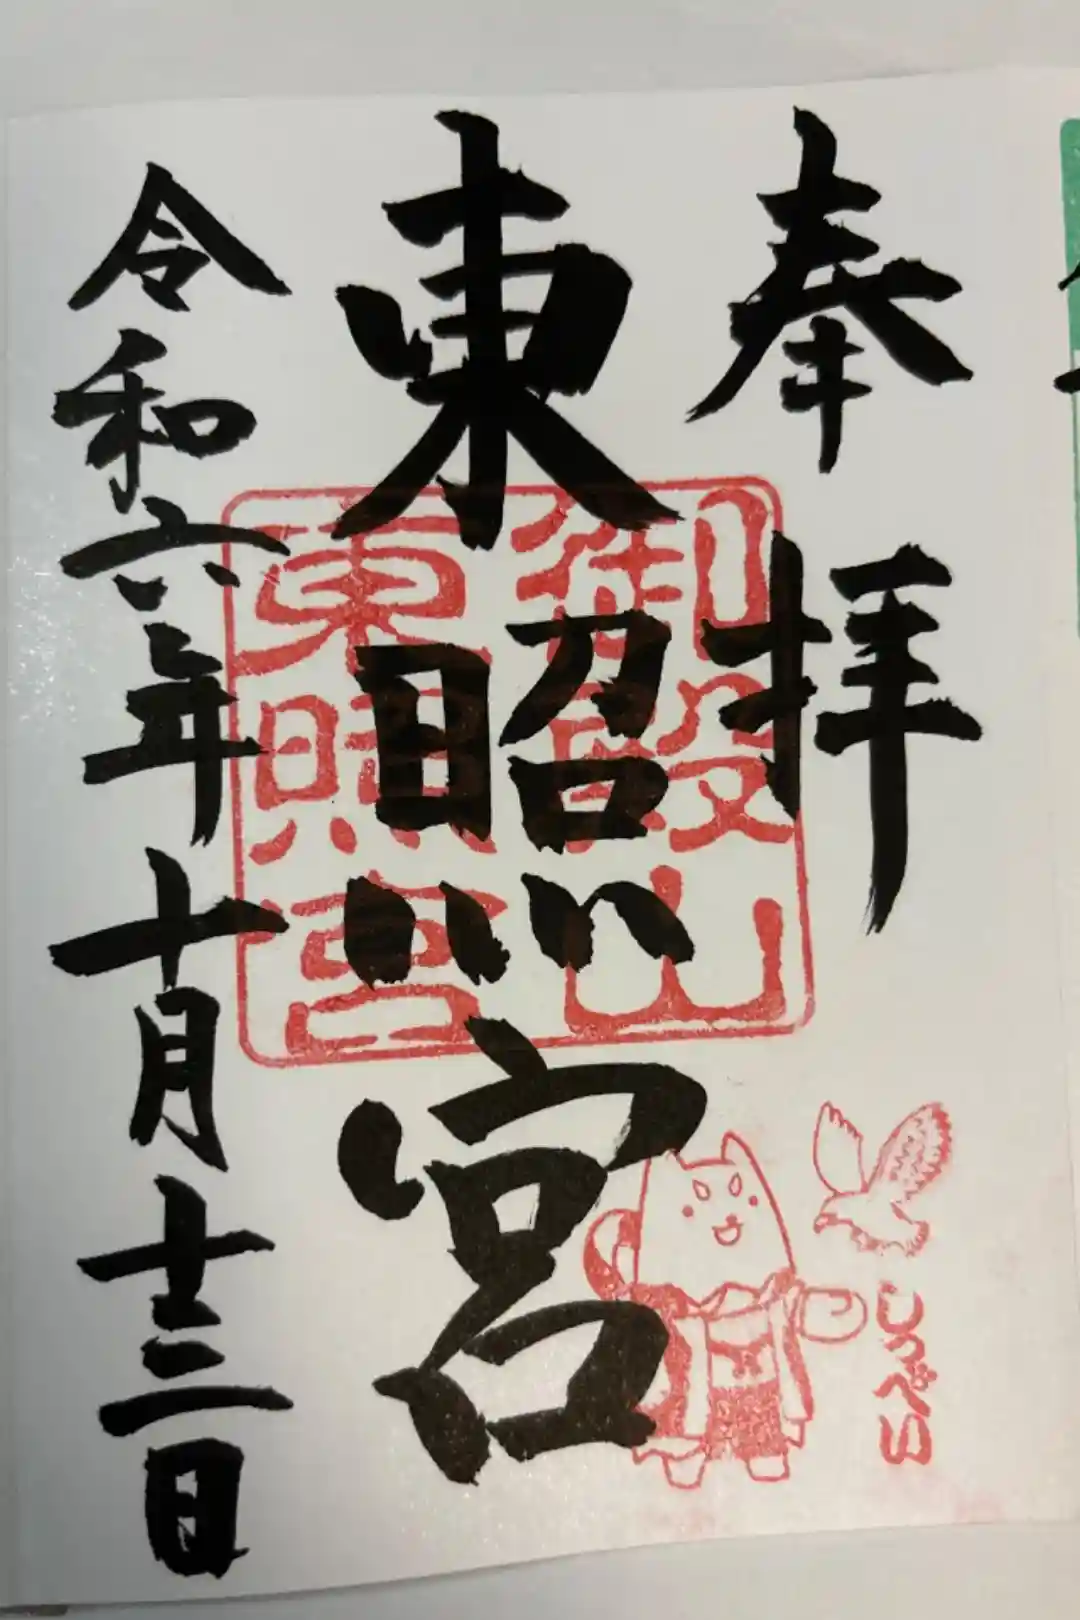 奉拝
東照宮
令和六年十月十三日
御殿山
東照宮